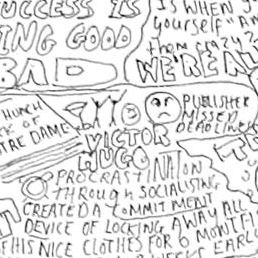 SUCCESS IS
ING GOOD
BAD
IS WHEN
yourself "A
from crazy
WE'RE AL
HUNCH
OF
TRE DAME
VICTOR
HUGO
PUBLISHER
MISSED
DEADLINE
PROCRASTINATION
through SOCIALISING
CREATED A COMMITMENT
DEVICE OF LOCKING AWAY ALL
HIS NICE CLOTHES FOR 6 MONTHS
EARL